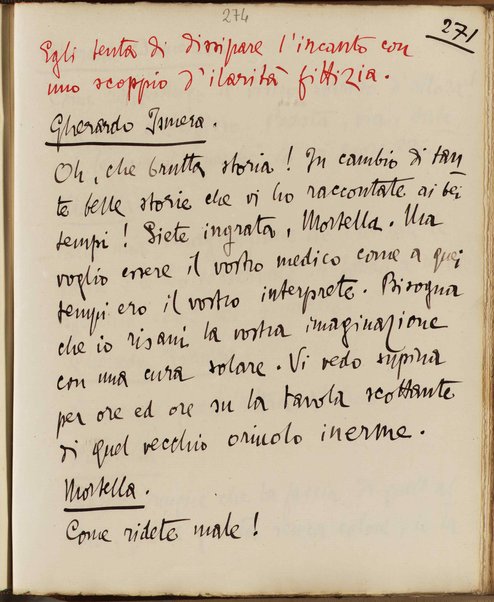 274
271
Egli tenta di dissipare l'incanto con
uno scoppio d'ilarità fittizia.
Gherardo Ismera.
Oh, che brutta storia! In cambio di tan-
te belle storie che vi ho raccontate ai bei
tempi! Siete ingrata, Mortella. Ma
voglio essere il vostro medico come a quei
tempi ero il vostro interprete. Bisogna
che io risani la vostra imaginazione
con una cura solare. Vi vedo supina
per ore ed ore su la tavola scottante
di quel vecchio oriuolo inerme.
Mortella.
Come ridete male!